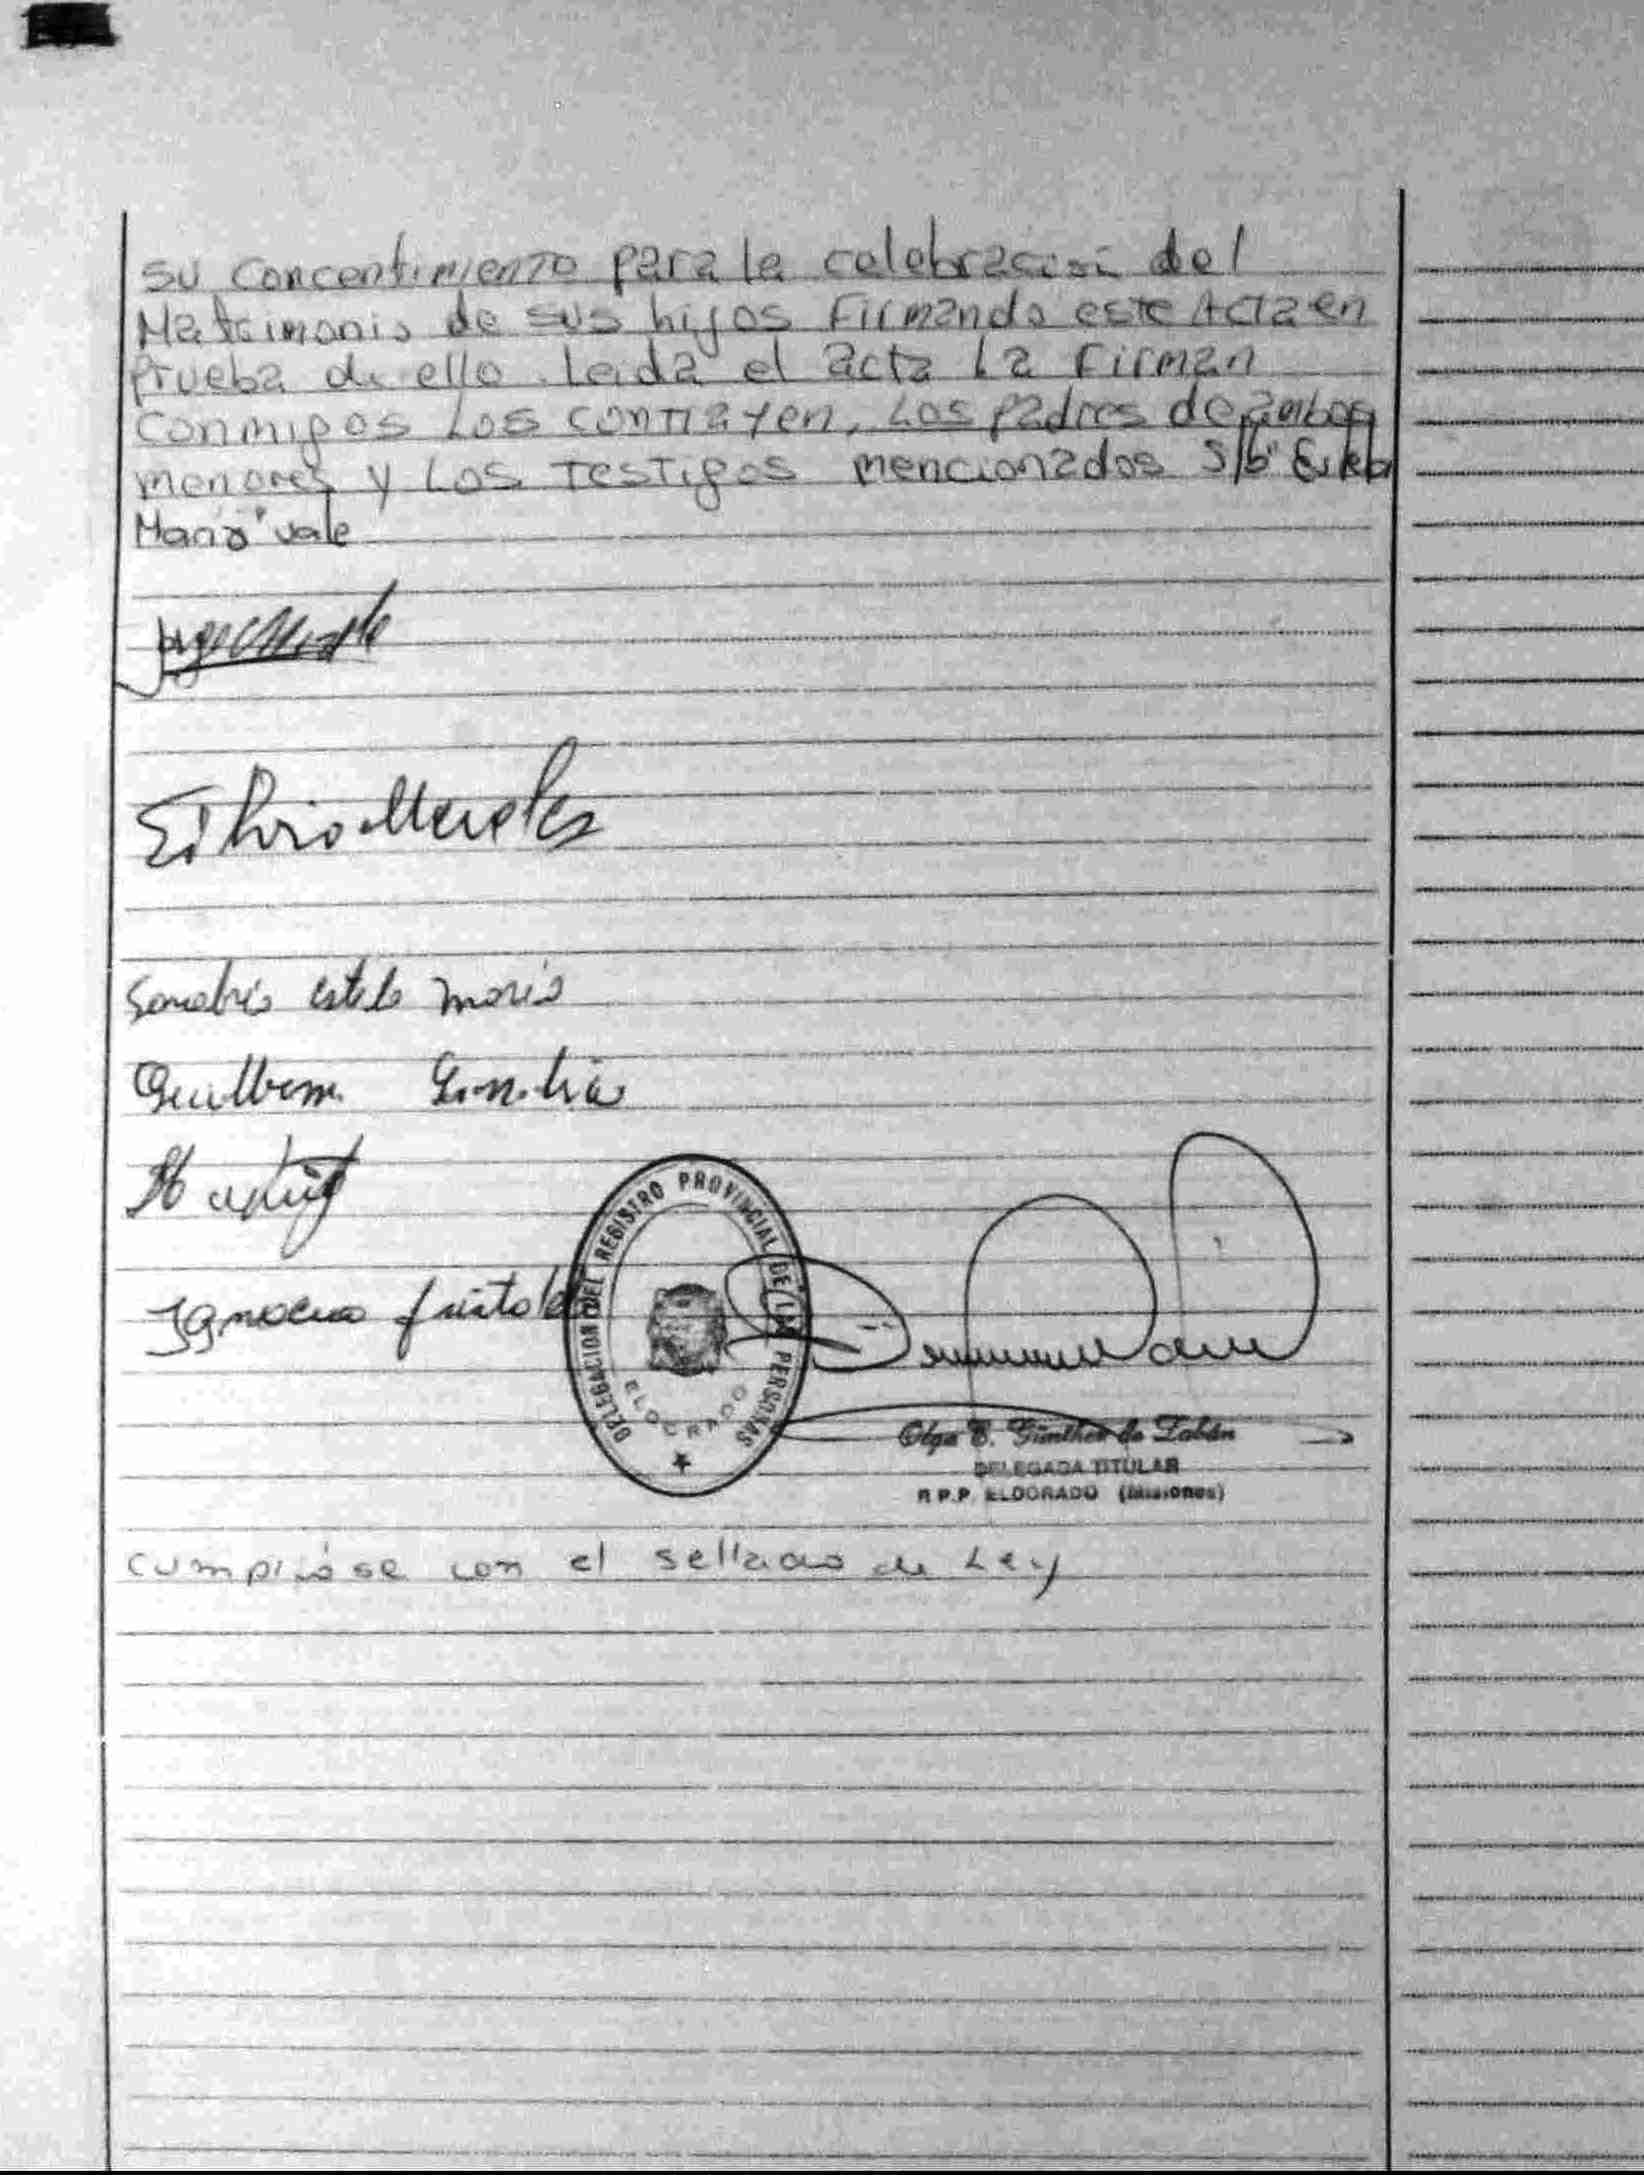 su Concentimiento para la celebracion del
Matrimonio de sus hijos Firmando este Acta en
prueba de ello. Leida el acta la Firman
Conmigos Los contrayen, Los padres de ambos
menores y Los Testigos mencionados S/b" Estela
Maria" vale
Silvio Mereles
estela maria
Guillerm
Ignacio
DELEGACION DEL REGISTRO PROVINCIAL DE LAS PERSONAS
ELDORADO
Olga E. Günther de Zabán
DELEGADA TITULAR
R.P.P. ELDORADO (Misiones)
cumplióse con el sellado de Ley